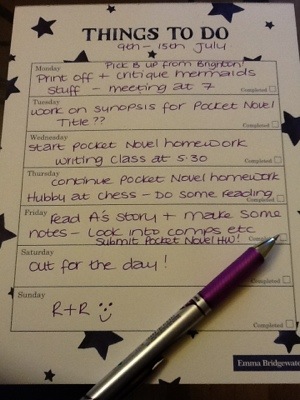 THINGS TO DO
9th - 15th July
Monday
Pick B up from Brighton!
Print off + critique mermaids
stuff - meeting at 7
Completed
Tuesday
work on synopsis for Pocket Novel
Title ??
Completed
Wednesday
start pocket Novel homework
writing class at 5:30
Completed
Thursday
continue Pocket Novel homework
Hubby at chess - Do some reading
Completed
Friday
Read A's story + make some
notes - Look into comps etc
Submit Pocket Novel HW!
Saturday
out for the day!
Completed
Sunday
R+R
Completed
Emma Bridgewater